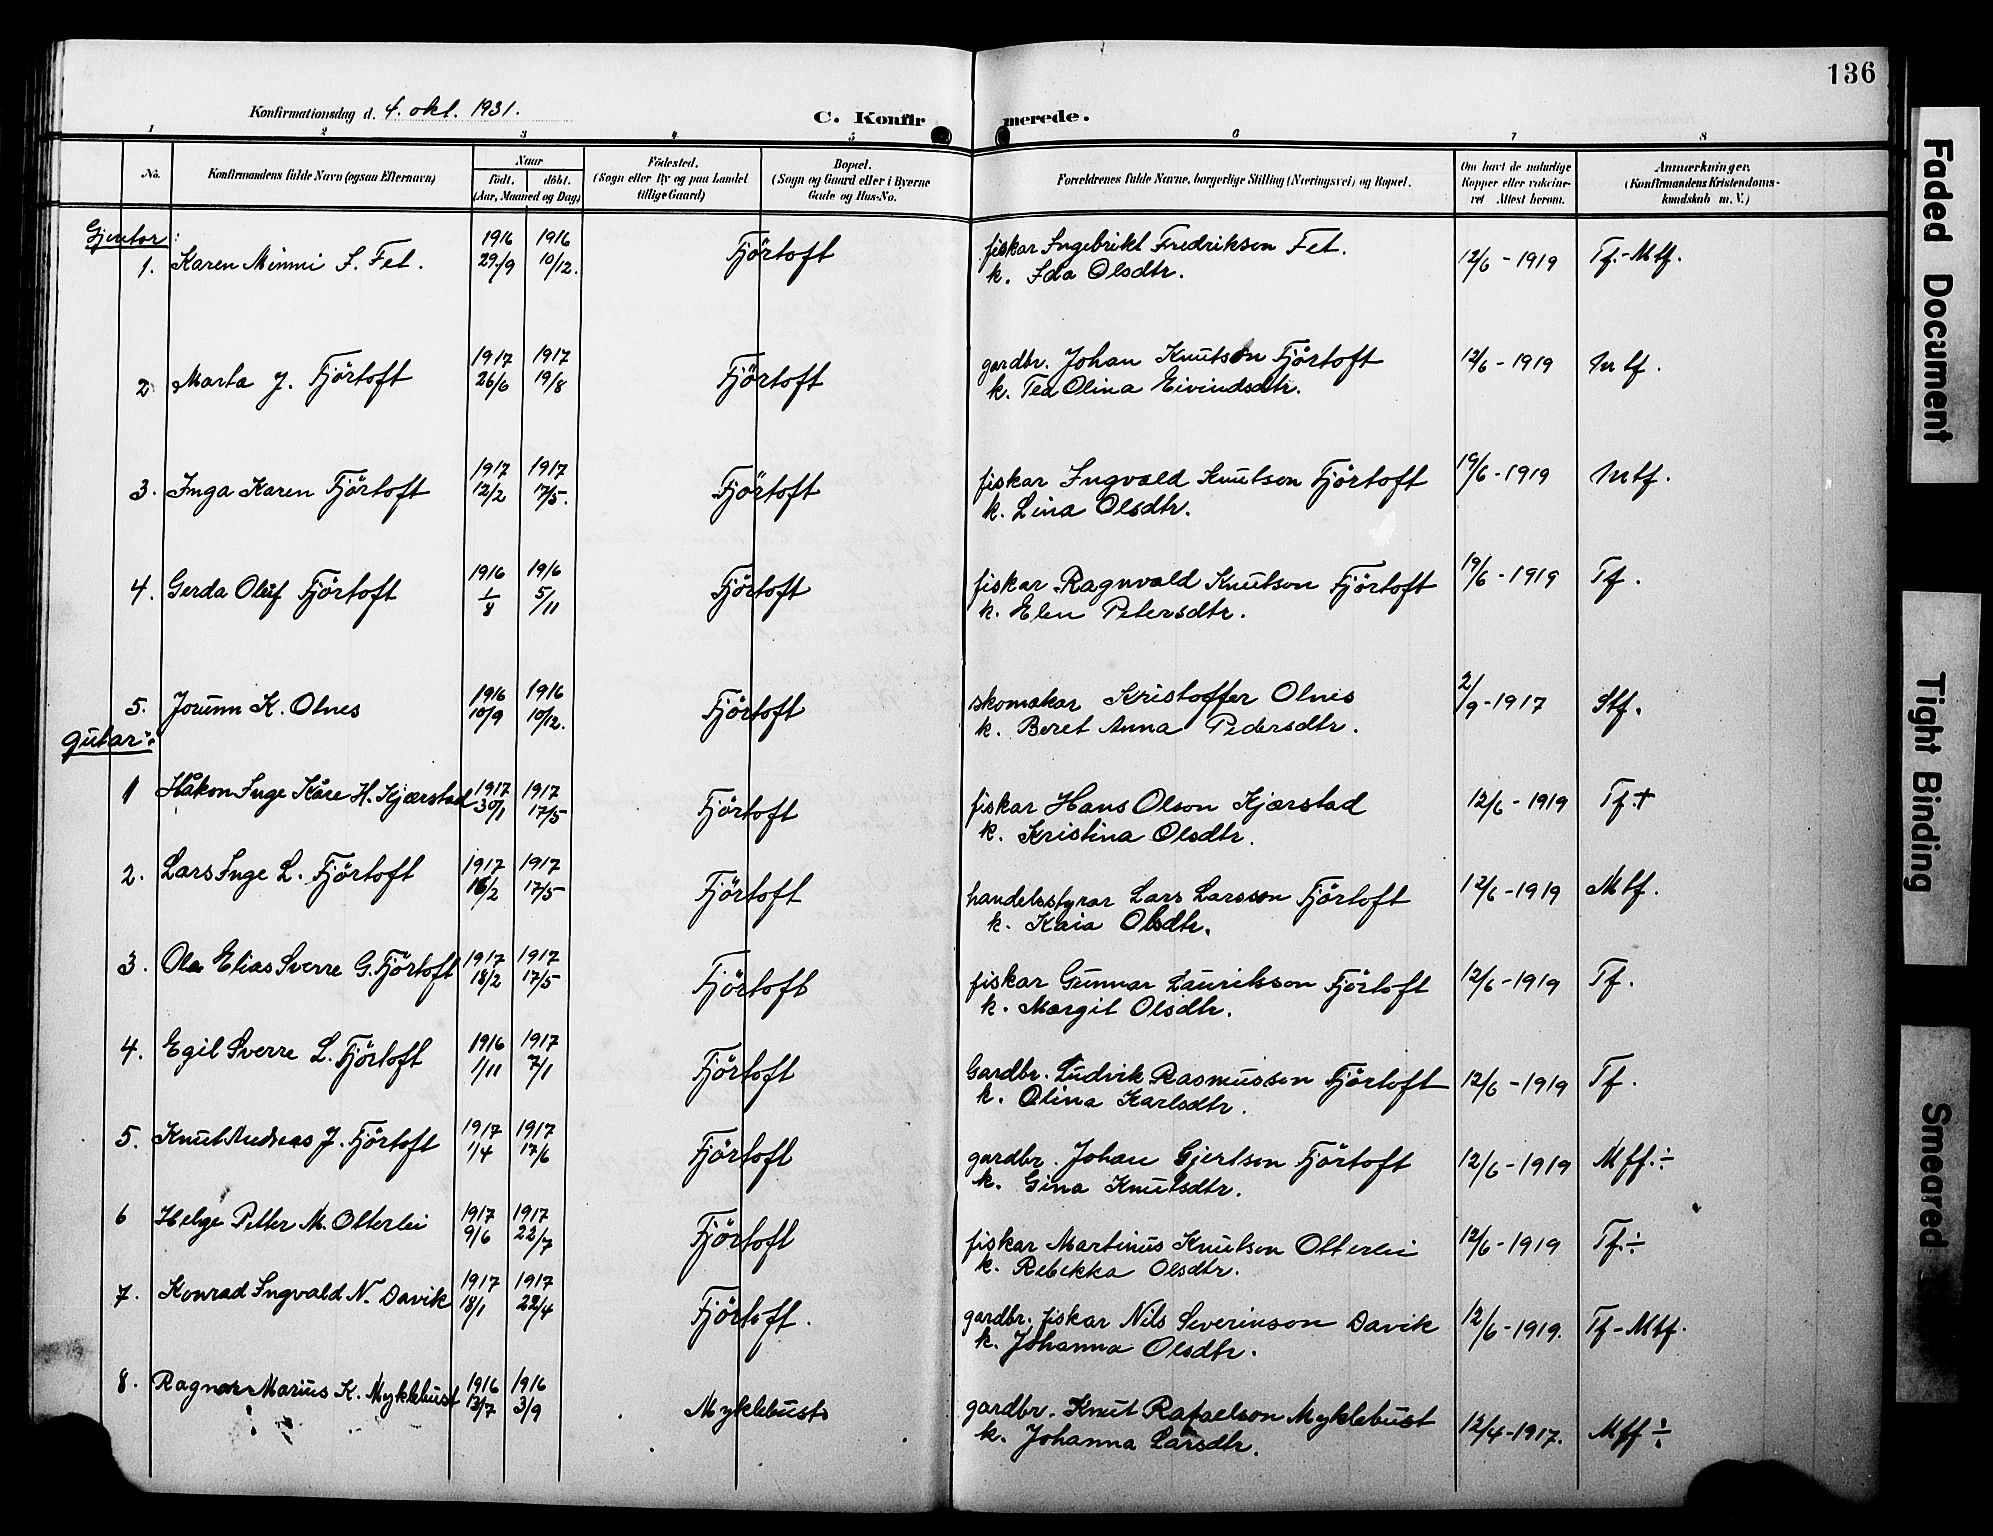 136
Konfirmationsdag d. 4. okt. 1931.
C. Konfirmerede.
1 2 3 4 5 6 7 8
No.
Konfirmandens fulde Navn (ogsaa Efternavn)
Naar
Født, døbt.
(Aar, Maaned og Dag)
Fødested.
(Sogn eller By og paa Landet
tillige Gaard)
Bopæl.
(Sogn og Gaard eller i Byerne
Gade og Hus-No.
Forældrenes fulde Navne, borgerlige Stilling (Næringsvei) og Bopæl.
Om havt de naturlige
Kopper eller vakcine-
ret Attest herom.
Anmærkninger.
(Konfirmandens Kristendoms-
kundskab m. V.)
Gjentor:
1. Karen Minni I. Fet. 1916 29/9 1916 10/12. Fjörtoft fiskar Ingebrikt Fredrikson Fet. 12/6 - 1919 Tf. - Mtf.
k. Ida Olsdtr.
2. Marta J. Fjörtoft 1917 26/6 1917 19/8 Fjörtoft gardbr. Johan Knutson Fjörtoft 12/6 - 1919 Mtf.
k. Tea Olina Eivindsdtr.
3. Inga Karen Fjörtoft 1917 12/2 1917 17/5. Fjörtoft fiskar Ingvald Knutson Fjörtoft 19/6 - 1919 Mtf.
k. Lina Olsdtr.
4. Gerda Oluf Fjörtoft 1916 1/8 1916 5/11 Fjörtoft fiskar Ragnvald Knutson Fjörtoft 19/6 - 1919 Tf.
k. Elen Petersdtr.
5. Jorunn K. Olnes 1916 10/9 1916 10/12. Fjörtoft skomakar Kristoffer Olnes 2/9 - 1917 Stf.
k. Beret Anna Pedersdtr.
Gutar:
1 Håkon Inge Kåre H. Kjærstad 1917 30/1 1917 17/5 Fjörtoft fiskar Hans Olson Kjærstad 12/6 - 1919 Tf. +
k. Kristina Olsdtr.
2. Lars Inge L. Fjörtoft 1917 16/2 1917 17/5 Fjörtoft handelsstyrar Lars Larsson Fjörtoft 12/6 - 1919 Mtf.
k. Kaia Olsdtr.
3. Ola Elias Sverre G. Fjörtoft 1917 18/2 1917 17/5 Fjörtoft fiskar Gunnar Lauritsson Fjörtoft 12/6 - 1919 Tf.
k. Margit Olsdtr.
4. Egil Sverre L. Fjörtoft 1916 1/11 1917 7/1 Fjörtoft Gardbr. Ludvik Rasmusson Fjörtoft 12/6 - 1919 Tf.
k. Olina Karlsdtr.
5. Knut Andreas J. Fjörtoft 1917 1/4 1917 17/6 Fjörtoft gardbr. Johan Gjertson Fjörtoft 12/6 - 1919 Mtf. ÷
k. Gina Knutsdtr.
6 Helge Petter M. Otterlei 1917 9/6 1917 22/7 Fjörtoft fiskar Martinus Knutson Otterlei 12/6 - 1919 Tf. ÷
k. Rebekka Olsdtr.
7. Konrad Ingvald N. Davik 1917 18/1 1917 22/4 Fjörtoft. gardbr. fiskar Nils Severinson Davik 12/6 - 1919. Tf - Mtf.
k. Johanna Olsdtr.
8. Ragnar Marius K. Myklebust 1916 13/7 1916 3/9 Myklebust gardbr. Knut Rafaelson Myklebust 12/4 - 1917. Mtf ÷
k. Johanna Larsdtr.
Faded Document
Tight Binding
Smeared